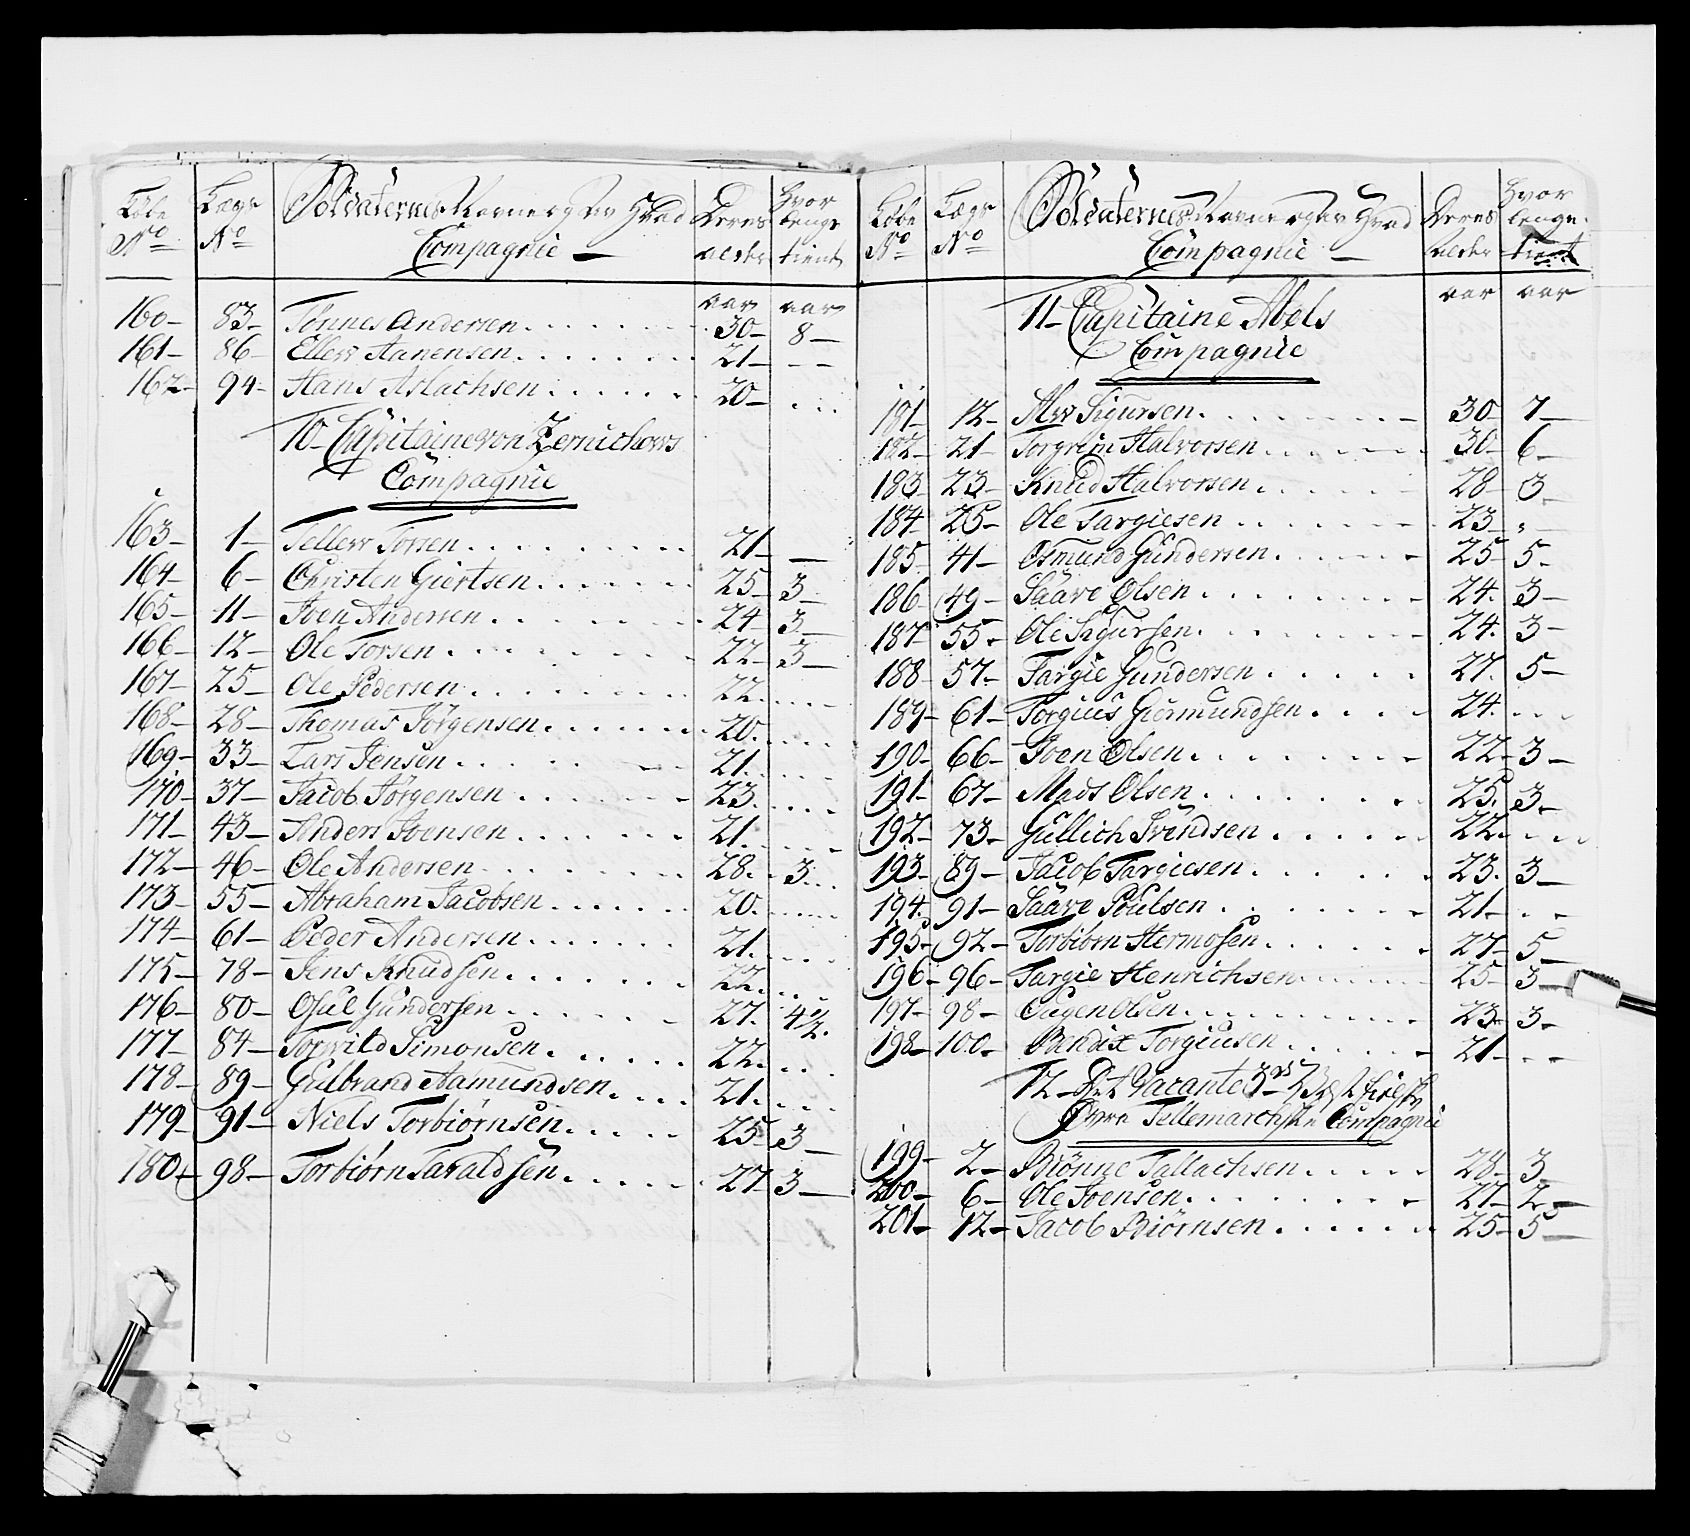 Løbe No Lægs No Soldaternes Navne og Compagnie Deres alder Hvor længe tient
aar aar
160 - 83 - Tönnes Andersen 30 - 8 -
161 - 86 - Ellew Aanensen 21 - - -
162 - 94 - Hans Aslachsen 20 -
10 - Capitaine von Zernichows
Compagnie
163 - 1 - Tellew Torsen 21 - -
164 - 6 - Christen Giertsen 25 - 3 -
165 - 11 - Joen Andersen 24 - 3 -
166 - 12 - Ole Torsen 22 - 3 -
167 - 25 - Ole Pedersen 22
168 - 28 - Thomas Jörgensen 20
169 - 33 - Lars Jensen 21
170 - 37 - Jacob Jörgensen 23
171 - 43 - Anders Joensen 21
172 - 46 - Ole Andersen 28 - 3
173 - 55 - Abraham Jacobsen 20
174 - 61 - Peder Andersen 21
175 - 78 - Jens Knudsen 22
176 - 80 - Osul Gundersen 27 - 4 1/2
177 - 84 - Torvild Simonsen 22
178 - 89 - Gulbrand Aamundsen 21
179 - 91 - Niels Torbiörnsen 25 - 3 -
180 - 98 - Torbiörn Taraldsen 27 - 3 -
Løbe No Lægs No Soldaternes Navne og Compagnie Deres alder Hvor længe tient
aar aar
11 - Capitaine Abels
Compagnie
181 - 12 - Alw Sigursen 30 - 7 -
182 - 21 - Torgrim Halvorsen 30 - 6 -
183 - 23 - Knud Halvorsen 28 - 3 -
184 - 25 - Ole Targiesen 23 - "
185 - 41 - Osmund Gundersen 25 - 5 -
186 - 49 - Saave Olsen 24 - 3 -
187 - 55 - Ole Sigursen 24 - 3 -
188 - 57 - Targie Gundersen 27 - 5 -
189 - 61 - Torgius Giermundsen 24
190 - 66 - Joen Olsen 22 - 3 -
191 - 67 - Mads Olsen 25 - 3 -
192 - 73 - Gullich Svendsen 22
193 - 89 - Jacob Targiesen 23 - 3 -
194 - 91 - Saave Poulsen 21 -
195 - 92 - Torbiörn Hermosen 27 - 5 -
196 - 96 - Targie Henrichsen 25 - 3 -
197 - 98 - Ougen Olsen 23 - 3 -
198 - 100 - Bendix Torgiusen 21 -
12 - Det Vacante
Øvre Tellemarchske Compagnie
199 - 2 - Biönne Tallachsen 28 - 3
200 - 6 - Ole Joensen 27 - 2 -
201 - 12 - Jacob Biörnsen 25 - 5 -